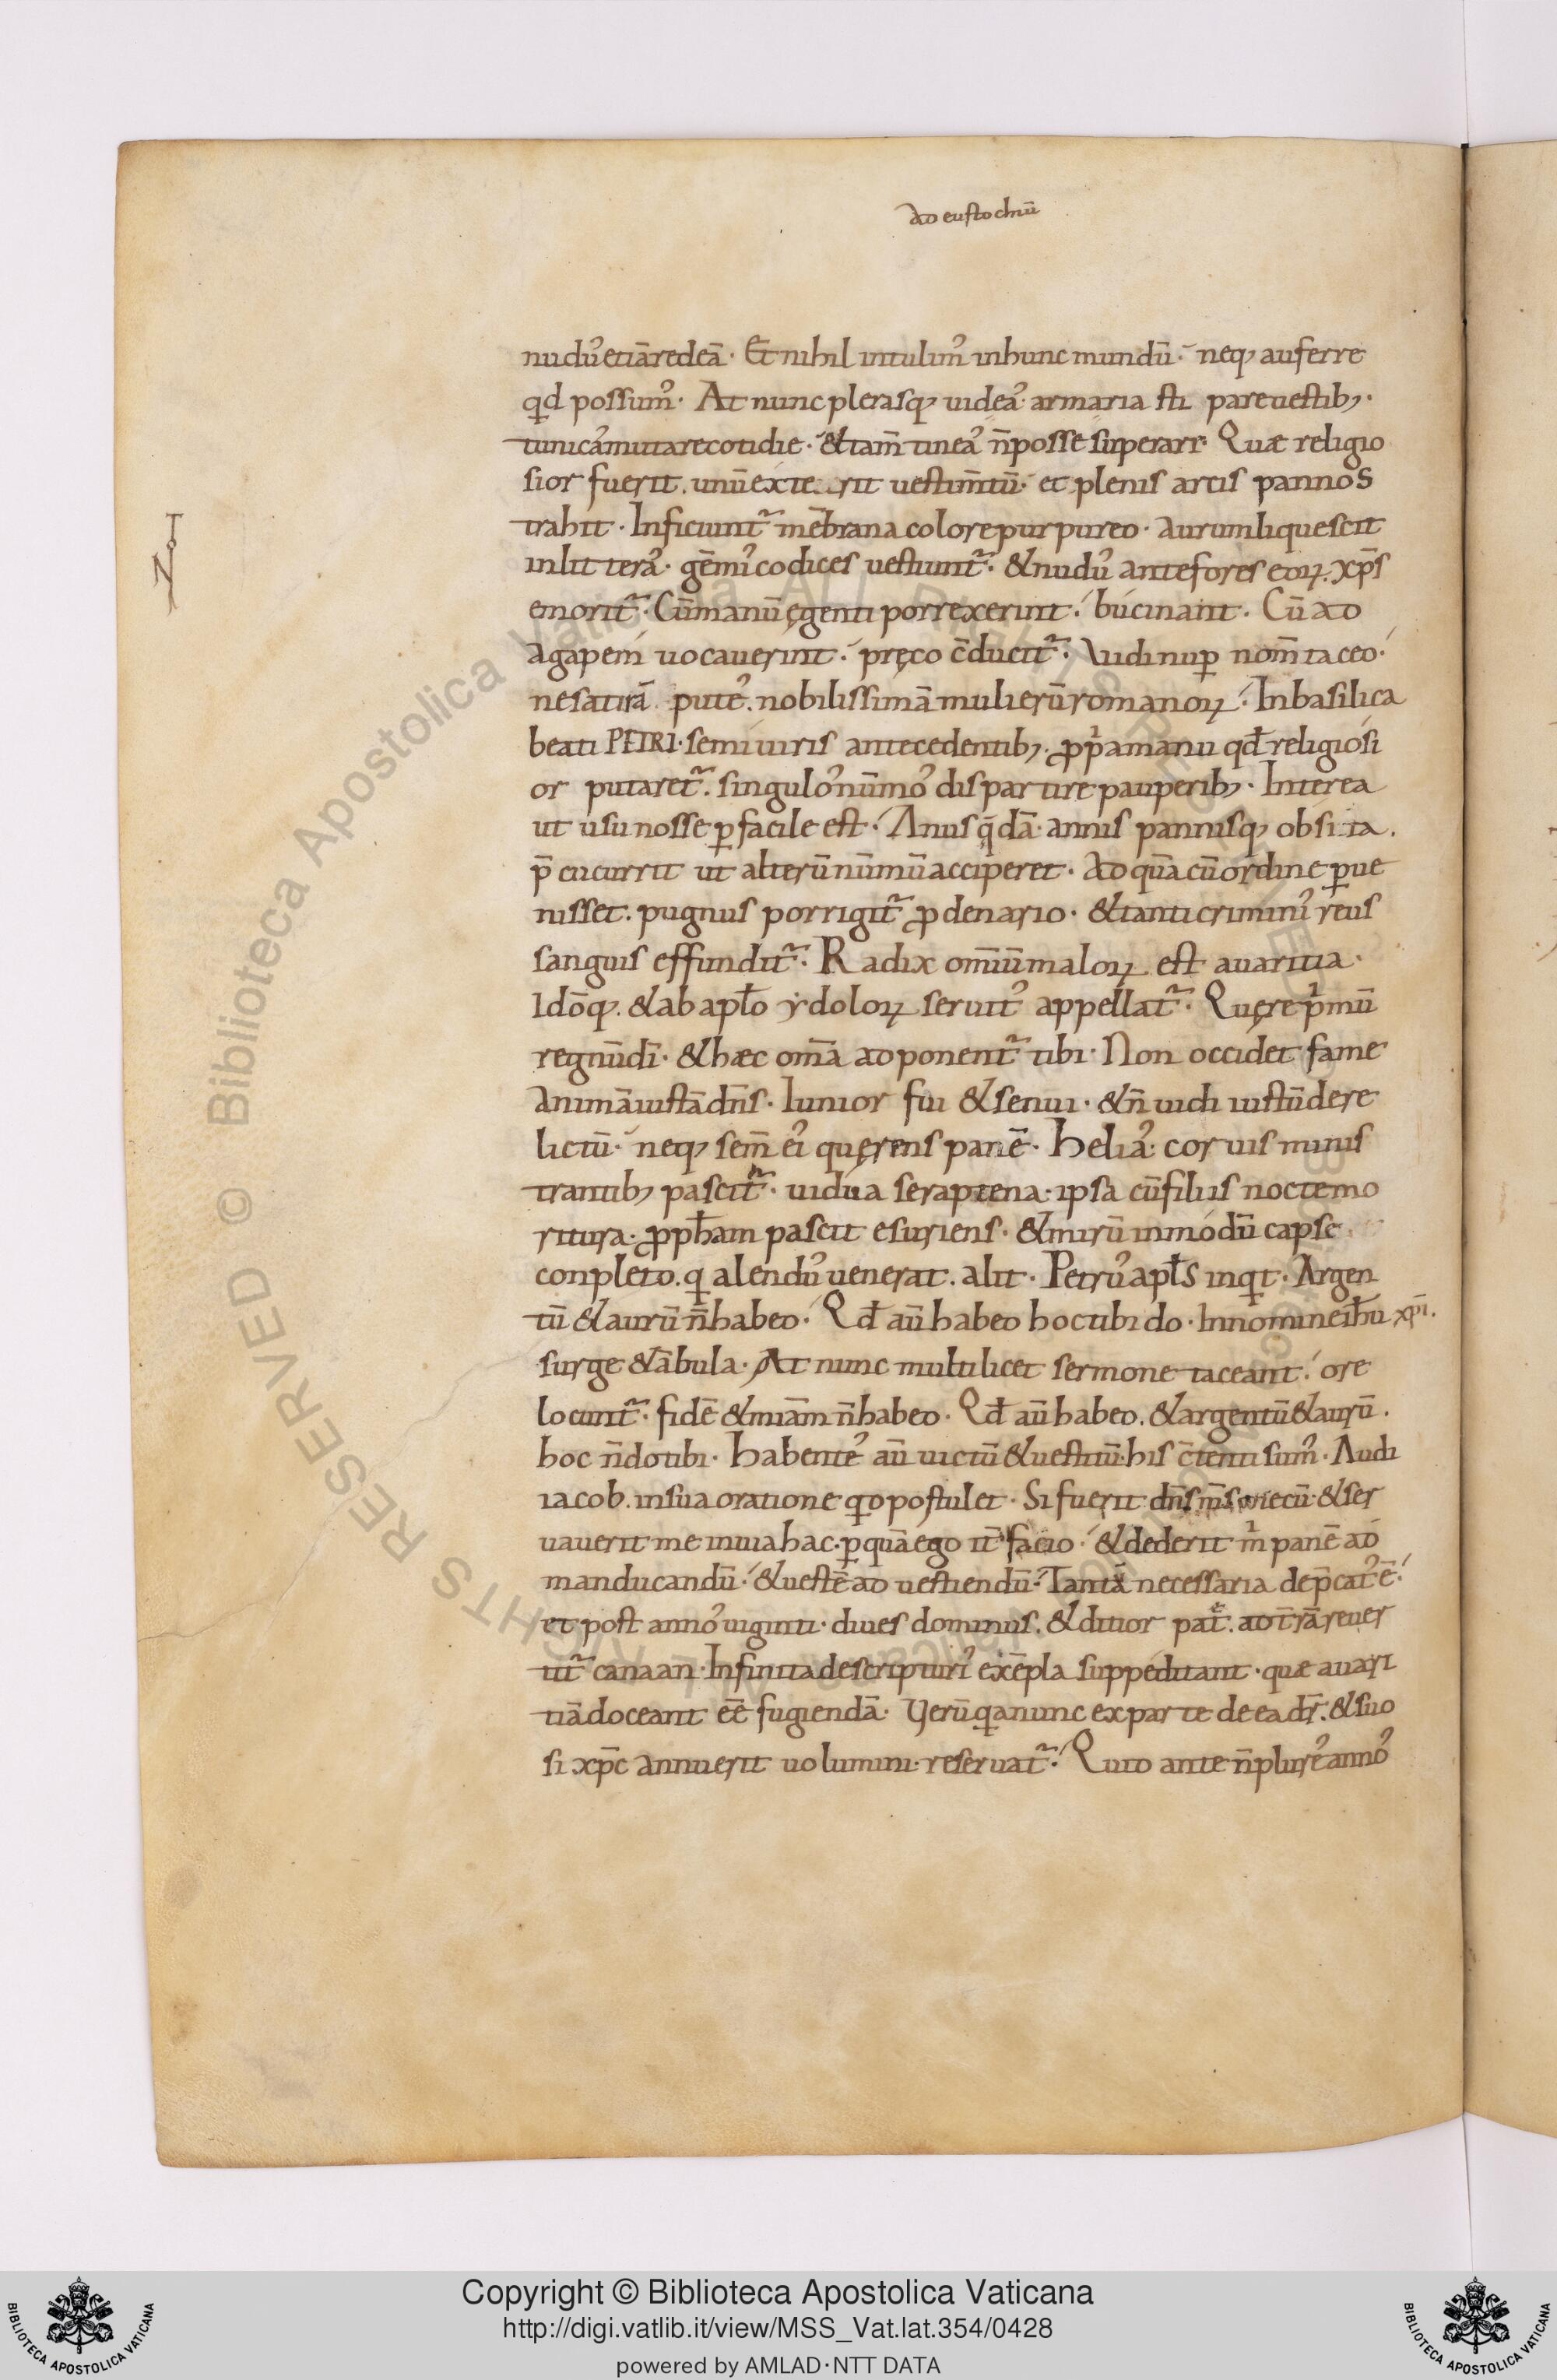 ao eustochiū
nudu᾽ etiā redeā· Et nihil intulim᾽ in hunc mundū· neq; auferre
qd possum᾽· At nunc plerasq; uidea᾽ armaria sti pare uestib;·
tunica᾽ mutare cotidie· & tam̄ tinea᾽ n̄ posse superare· Quæ religio
sior fuerit. unū exte rit uestim̄tū· et plenis arcis pannos
trahit· Inficiunt᷑ mēbrana colore purpureo· aurum liquescit
in littera᾽· gēmi᾽ codices uestiunt᷑· & nudu᾽ ante fores eoꝝ. xp̄s
emorit᷑· Cū manū ęgenti porrexerint· bucinant· Cū ad
agapem uocauerint· pręco c̄ducit᷑· Vidi nuꝑ nom̄ taceo·
ne satirā pute᾽. nobilissimā mulierū romanoꝝ· In basilica
beati PETRI· semiuiris antecedentib;· ꝓpͥa manu qđ religiosi
or putaret᷑. singulo᾽ nūmo᾽ dispartire pauperib;· Interea
ut usu nosse ꝑfacile est· Anus q̄dā· annis pannisq; obsita.
p̄cucurrit ut alterū nūmū acciperet· Ad quā cū ordine ꝑue
nisset. pugnus porrigit᷑ ꝓ denario· & tanti crimini᾽ reus
sanguis effundit᷑· Radix omīū maloꝝ est auaritia·
Idōq;. & ab apɫo ydoloꝝ seruit᾽ appellat᷑· Quęre pͥmū
regnū dī· & hæc om̄a adponent᷑ tibi· Non occidet fame
animā iustā dn̄s· Iunior fui & senui· & n̄ uidi iustū dere
lictū· neq; sem̄ ei᾽ quęrens panē· Helia᾽ coruis minis
trantib; pascit᷑· uidua seraptena· ipsa cū filiis nocte mo
ritura· ꝓph̄am pascit esuriens· & mirū in modū capse
conpleto. q alendu᾽ uenerat. alit· Petru᾽ apɫs inqͥt· Argen
tū & aurū n̄ habeo· Qđ aū habeo hoc tibi do· In nomine ih̄u xp̄i.
surge & ābula· At nunc multi licet sermone taceant· ore
locunt᷑· fidē & miām n̄ habeo· Qđ aū habeo. & argentū & aurū.
hoc n̄ do tibi· Habente᾽ aū uictū & uestitū· his c̄tenti sum᾽· Audi
iacob. in sua oratione qͥd postulet· Si fuerit dn̄s m̄s mecū· & ser
uauerit me in uia hac· ꝑ quā ego it̄ facio· & dederit mͥ panē ad
manducandū· & uestē ad uestiendū· Tantā necessaria dep̄cat᾽ ē·
et post anno᾽ uiginti· diues dominus. & ditior pat̄. ad t̄rā reuer
tit᷑ canaan· Infinita de scripturi᾽ exēpla suppeditant· quæ auari
tiā doceant eē fugiendā· Verū qͥa nunc ex parte de ea dr̄· & suo
si xp̄c annuerit uolumini· reseruat᷑· Quid ante n̄ plure᾽ anno᾽
Copyright © Biblioteca Apostolica Vaticana
http://digi.vatlib.it/view/MSS_Vat.lat.354/0428
powered by AMLAD·NTT DATA